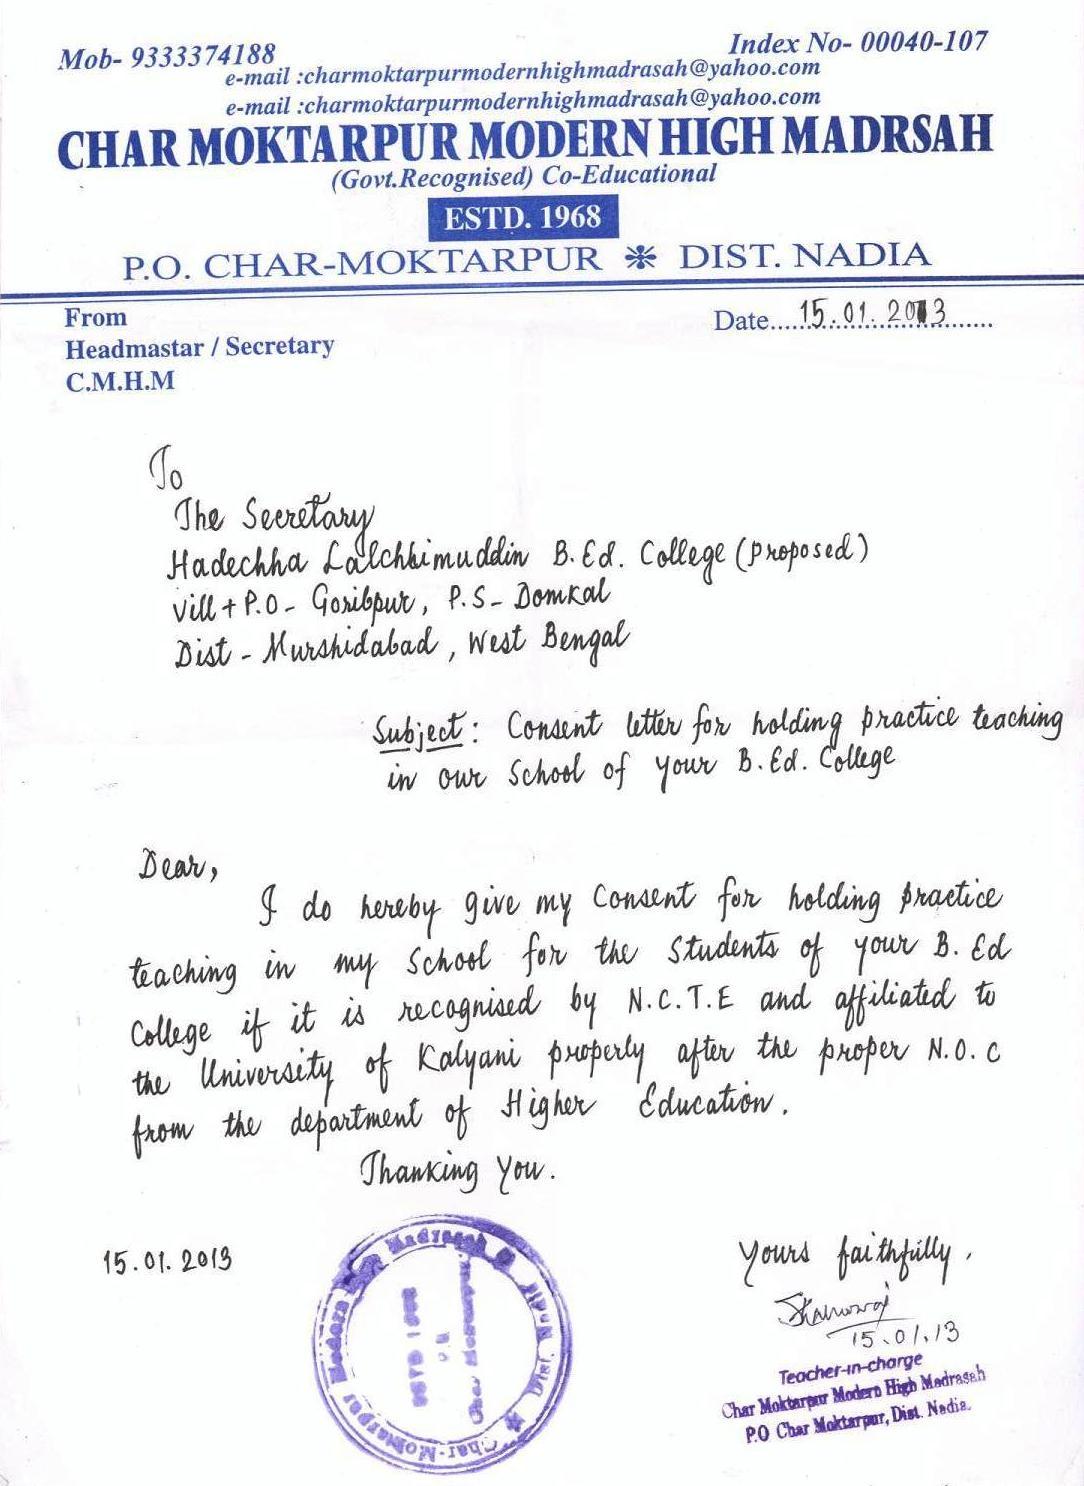 Mob- 9333374188
Index No- 00040-107
e-mail :charmoktarpurmodernhighmadrasah@yahoo.com
e-mail :charmoktarpurmodernhighmadrasah@yahoo.com
CHAR MOKTARPUR MODERN HIGH MADRSAH
(Govt.Recognised) Co-Educational
ESTD. 1968
P.O. CHAR-MOKTARPUR ❋ DIST. NADIA
From
Date......15.01.2013......
Headmastar / Secretary
C.M.H.M
To
The Secretary
Hadechha Lalchhimuddin B.Ed. College (proposed)
Vill + P.O - Goribpur, P.S - Domkal
Dist - Murshidabad, West Bengal
Subject: Consent letter for holding practice teaching
in our School of your B.Ed. College
Dear,
I do hereby give my Consent for holding practice
teaching in my School for the Students of your B. Ed
College if it is recognised by N.C.T.E and affiliated to
the University of Kalyani properly after the proper N.O.C
from the department of Higher Education.
Thanking You.
15.01.2013
Yours faithfully,
15.01.13
Teacher-in-charge
Char Moktarpur Modern High Madrasah
P.O Char Moktarpur, Dist. Nadia.
Char-Moktarpur Modern Madrasah
Dist.